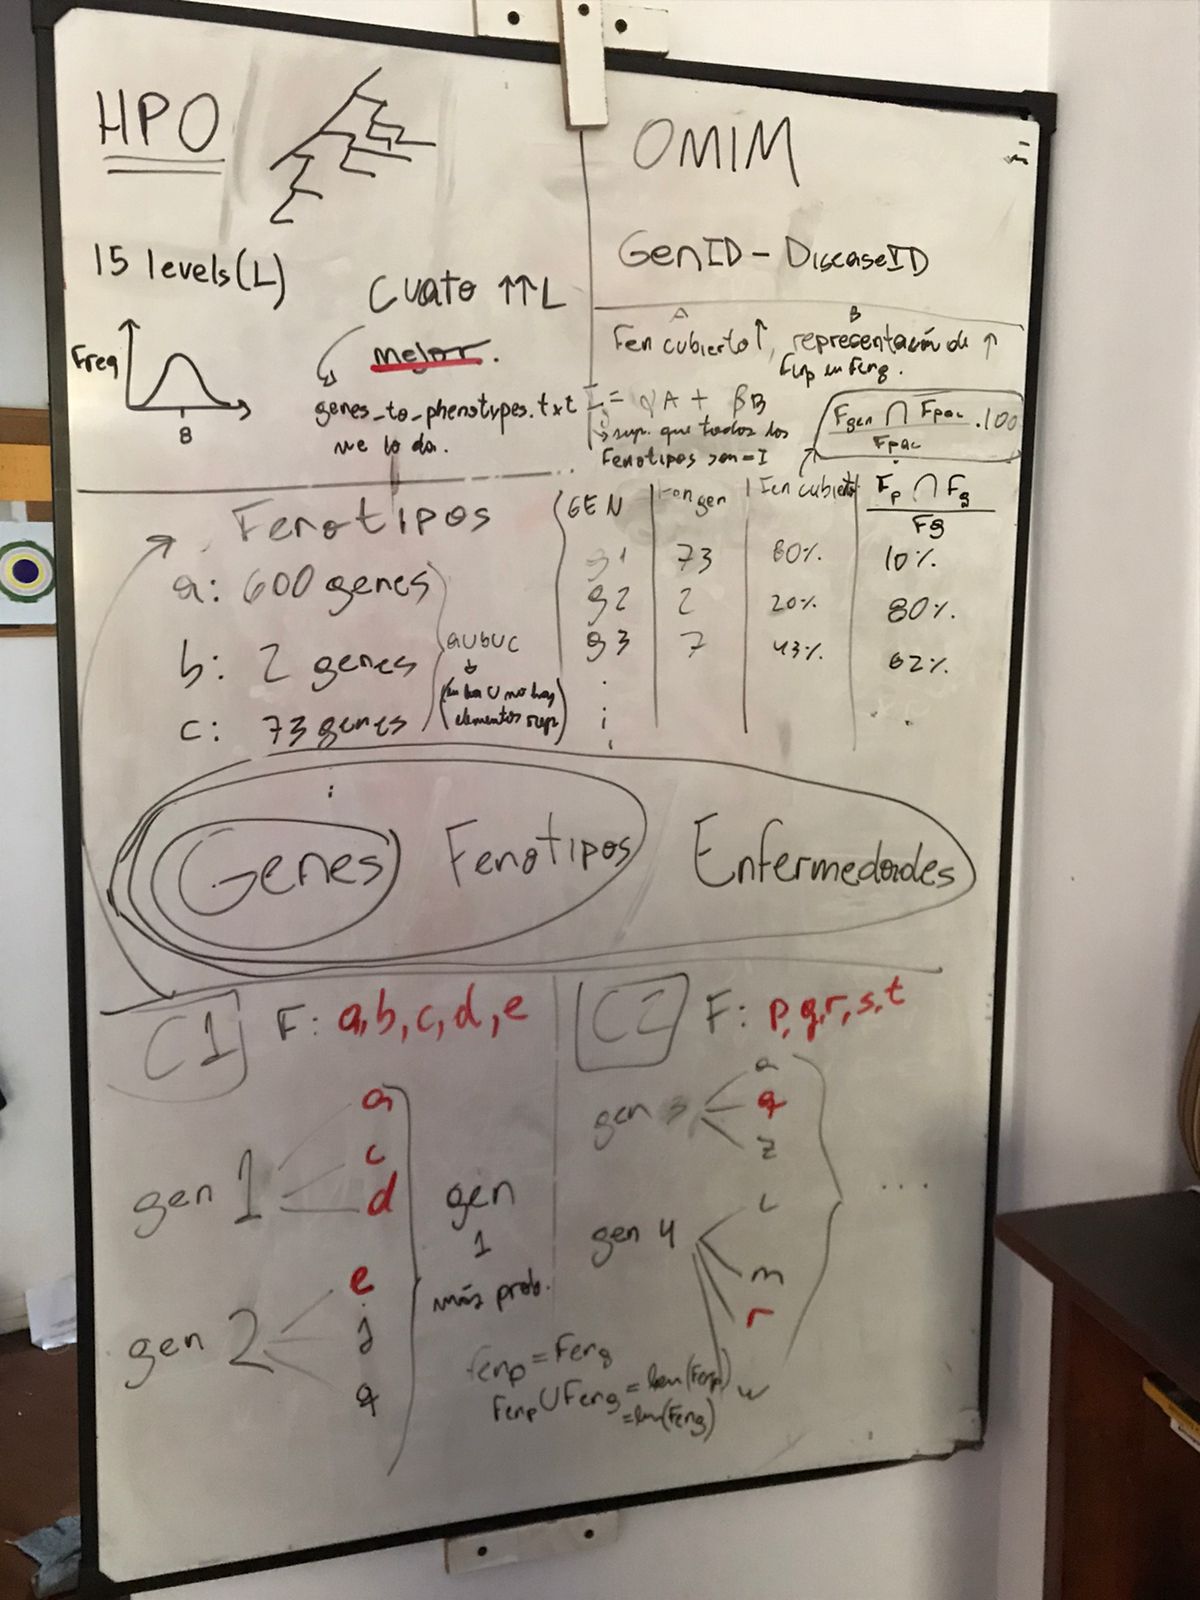 HPO
15 levels(L)
Freq
8
Cuato ↑↑L
mejor.
genes_to_phenotypes.txt
me lo da.
OMIM
GenID - DiseaseID
A
B
Fen cubierto ↑, representación de ↑
Fenp en Feng.
I = γA + βB
↳ sup. que todos los
Fenotipos son = I
Fgen ∩ Fpac
Fpac
.100
Fenotipos
a: 600 genes
b: 2 genes
c: 73 genes
aUbUc
(en la U no hay
elementos rep)
GEN | Fen gen | Fen cubierto | Fp ∩ Fg
Fg
g1 73 80% 10%
g2 2 20% 80%
g3 7 43% 62%
Genes Fenotipos Enfermedades
C1 F: a,b,c,d,e
gen 1
a
c
d
gen 2
e
j
q
gen
1
más prob.
C2 F: p,q,r,s,t
gen 3
a
q
z
gen 4
l
m
r
w
...
fenp = Feng
Fenp U Feng = len(Fenp)
= len(Feng)